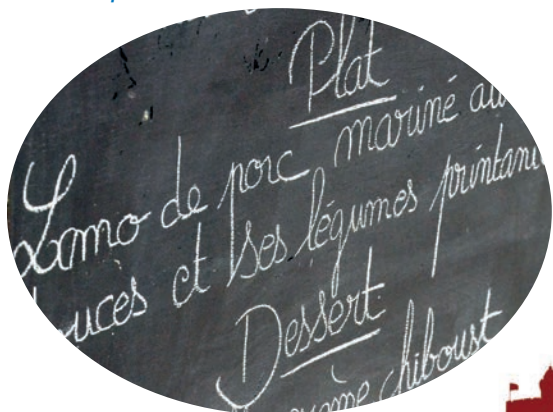 Plat
Lomo de porc mariné au
ouces et ses légumes printani
Dessert
crème chiboust